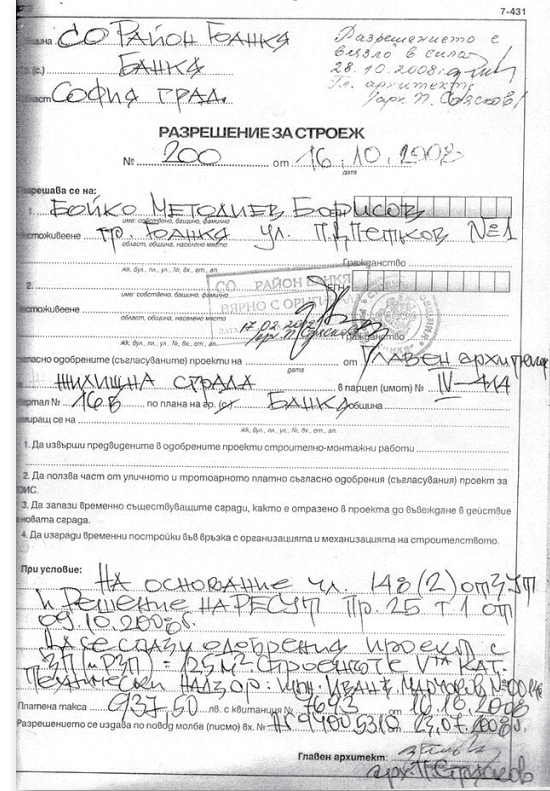 7-431
СО РАЙОН БАНКЯ
Разрешението е
влязло в сила
28.10.2008г.
Гл. архитект:
/арх. П.
(с.) БАНКЯ
СОФИЯ ГРАД.
РАЗРЕШЕНИЕ ЗА СТРОЕЖ
№ 200 от 16.10.2008
дата
Разрешава се на:
1. БОЙКО МЕТОДИЕВ БОРИСОВ
име: собствено, бащино, фамилно
местоживеене гр. БАНКЯ ул. П.Д.ПЕТКОВ №1
област, община, населено място
Гражданство
жк, бул., пл., ул., №, вх., ет., ап.
СО РАЙОН БАНКЯ
2.
ВЯРНО С
име: собствено, бащино, фамилно
местоживеене
ДАТА 17.02.
област, община, населено място
Гражданство
жк, бул., пл., ул., №, вх., ет., ап.
съгласно одобрените (съгласуваните) проекти на от ГЛАВЕН
дата
ЖИЛИЩНА СГРАДА в парцел (имот) № IV-414
квартал № 16В по плана на гр. (с.) БАНКЯ община
жк, бул., пл., ул., №, вх., ет., ап.
1. Да извърши предвидените в одобрените проекти строително-монтажни работи
2. Да ползва част от уличното и тротоарното платно съгласно одобрения (съгласувания) проект за
ОИС.
3. Да запази временно съществуващите сгради, както е отразено в проекта до въвеждане в действие
новата сграда.
4. Да изгради временни постройки във връзка с организацията и механизацията на строителството.
При условие: НА ОСНОВАНИЕ чл. 148(2) от ЗУТ
И РЕШЕНИЕ НА РЕСУТ ПР. 25 Т 1 ОТ
09.10.2008г.
ДА СЕ СПАЗИ ОДОБРЕНИЯ ПРОЕКТ С
ЗП (и РЗП) = 125 М² СТРОЕЖЪТ Е Vта КАТ.
ТЕХНИЧЕСКИ НАДЗОР: ИНЖ. ИВАН
Платена такса 937,50 лв. с квитанция № 7643 от 10.10.2008
Разрешението се издава по повод молба (писмо) вх. № 23.07.2008г.
Главен архитект:
арх. П.